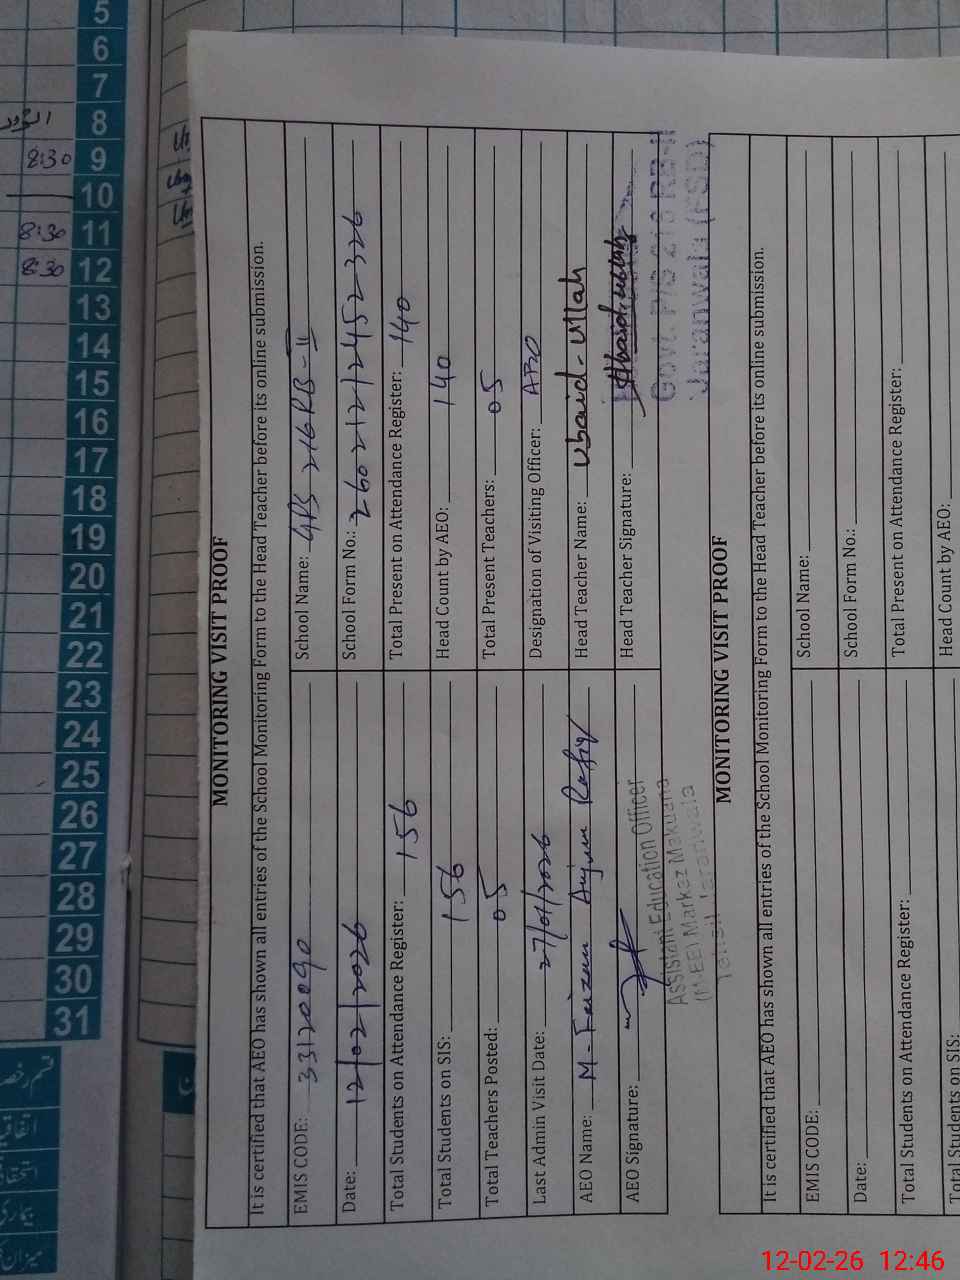 MONITORING VISIT PROOF
It is certified that AEO has shown all entries of the School Monitoring Form to the Head Teacher before its online submission.
EMIS CODE: 33120090 School Name: GPS 216 RB-II
Date: 12/02/2026 School Form No.: 26021212452326
Total Students on Attendance Register: 156 Total Present on Attendance Register: 140
Total Students on SIS: 156 Head Count by AEO: 140
Total Teachers Posted: 05 Total Present Teachers: 05
Last Admin Visit Date: 27/01/2026 Designation of Visiting Officer:
AEO Name: M-Faizan Anjum Rafiq Head Teacher Name: Ubaid-Ullah
AEO Signature: Head Teacher Signature: Ubaidullah
Assistant Education Officer
(M-EE) Markaz Makuana
Tehsil Jaranwala
Govt. P/S 216 RB-II
Jaranwala (FSD)
MONITORING VISIT PROOF
It is certified that AEO has shown all entries of the School Monitoring Form to the Head Teacher before its online submission.
EMIS CODE: School Name:
Date: School Form No.:
Total Students on Attendance Register: Total Present on Attendance Register:
Total Students on SIS: Head Count by AEO:
5
6
7
8
8:30 9
10
8:30 11
8:30 12
13
14
15
16
17
18
19
20
21
22
23
24
25
26
27
28
29
30
31
قسم رخصت
اتفاقیہ
استحقاقی
بیماری
میزان
12-02-26 12:46